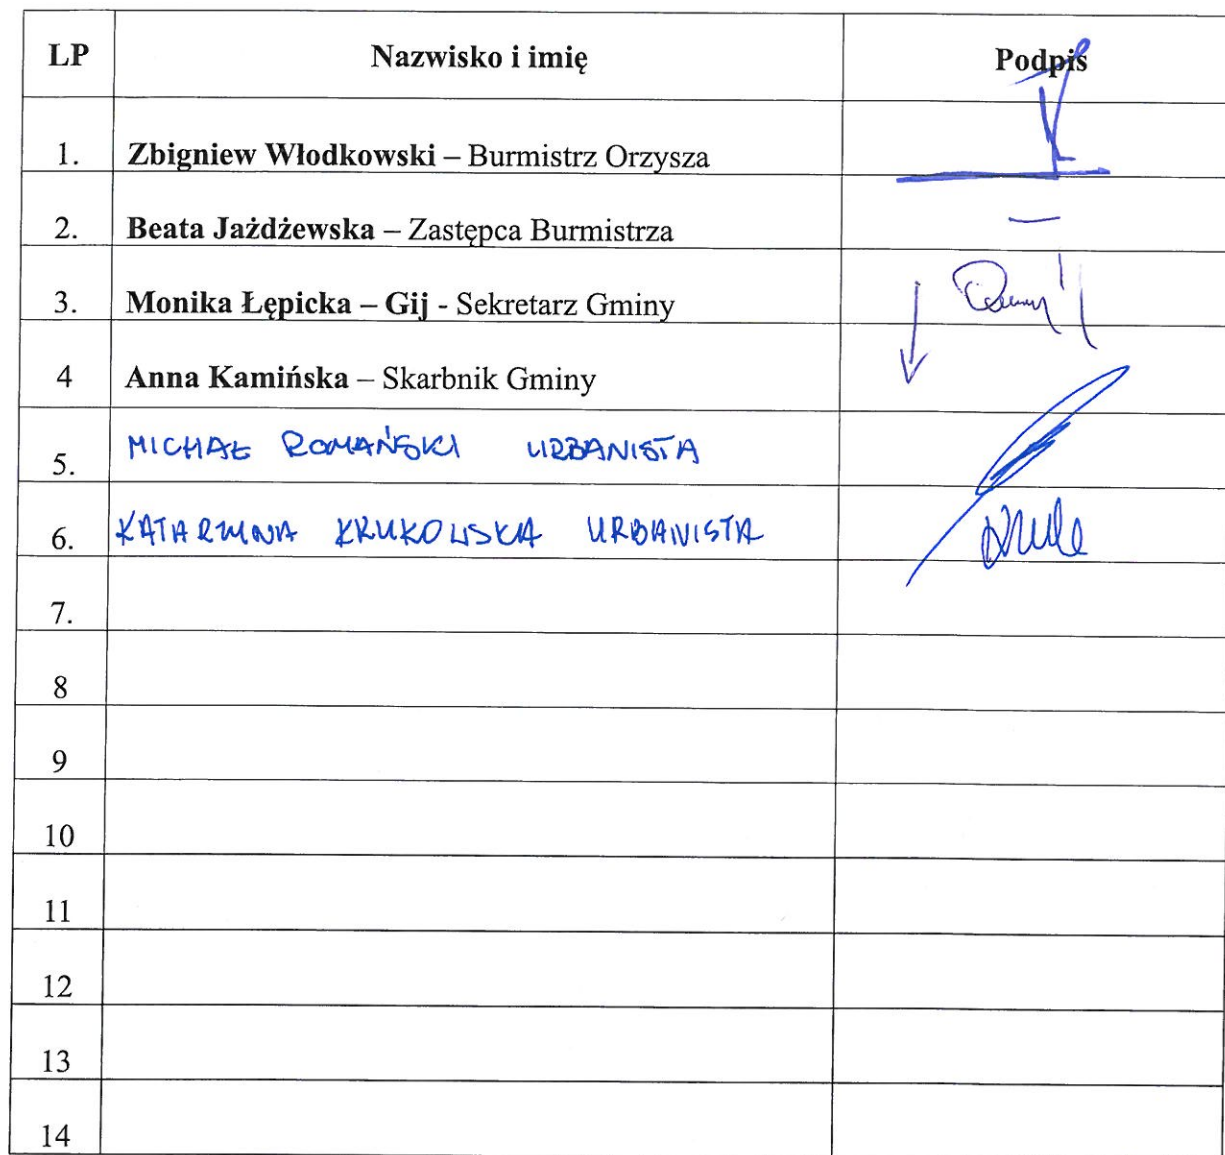 LP Nazwisko i imię Podpis
1. Zbigniew Włodkowski – Burmistrz Orzysza
2. Beata Jażdżewska – Zastępca Burmistrza –
3. Monika Łępicka – Gij - Sekretarz Gminy
4 Anna Kamińska – Skarbnik Gminy
5. MICHAŁ ROMAŃSKI URBANISTA
6. KATARZYNA KRUKOWSKA URBANISTA
7.
8
9
10
11
12
13
14